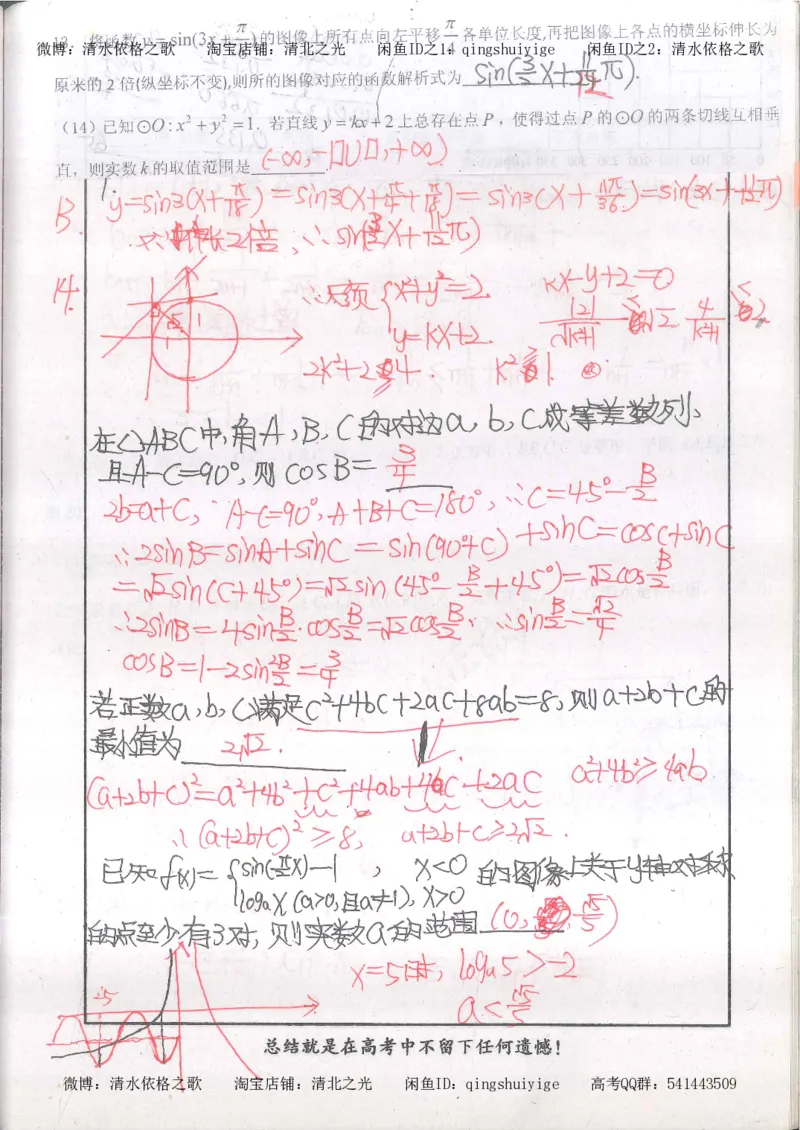 13. 将函数 y = sin(3x + π/ ) 的图像上所有点向左平移 π/ 各单位长度,再把图像上各点的横坐标伸长为
微博：清水依格之歌 淘宝店铺：清北之光 闲鱼ID之14 qingshuiyige 闲鱼ID之2：清水依格之歌
原来的 2 倍(纵坐标不变),则所的图像对应的函数解析式为 sin(3/2 x + 11/12 π).
(14) 已知⊙O: x² + y² = 1. 若直线 y = kx + 2 上总存在点 P ，使得过点 P 的⊙O 的两条切线互相垂
直，则实数 k 的取值范围是 (-∞, -1]∪[1, +∞)
13 y=sin3(x+π/18) = sin3(x+π/4+π/18) = sin3(x+11π/36) = sin(3x+11/12 π)
伸长2倍, ∴ sin(3/2 x+11/12 π)
14. ∴只须 { x²+y²=2 kx-y+2=0
y=kx+2 |2|/√(k²+1) ≤ √2 4/(k²+1) ≤ 2
2k²+2≥4. k²≥1
在△ABC中,角A,B,C的对边a,b,c成等差数列、
且A-C=90°,则cosB= 3/4
2b=a+c, A-C=90°, A+B+C=180°, ∴C=45°-B/2
∴2sinB=sinA+sinC = sin(90°+C)+sinC=cosC+sinC
=√2sin(C+45°)=√2sin(45°-B/2+45°)=√2cosB/2
∴2sinB=4sinB/2·cosB/2=√2cosB/2, ∴sinB/2=√2/4
cosB=1-2sin²B/2=3/4
若正数a,b,c满足c²+4bc+2ac+8ab=8,则a+2b+c的
最小值为 2√2.
(a+2b+c)²=a²+4b²+c²+4ab+4bc+2ac a²+4b²≥4ab
∴(a+2b+c)²≥8, a+2b+c≥2√2.
已知f(x)= { sin(π/2 x)-1 , x<0 的图像上关于y轴对称
logₐx (a>0,且a≠1), x>0
的点至少有3对,则实数a的范围 (0, √5/5)
x=5时, logₐ5>-2
-5
a<√5/5
总结就是在高考中不留下任何遗憾！
微博：清水依格之歌 淘宝店铺：清北之光 闲鱼ID：qingshuiyige 高考QQ群：541443509